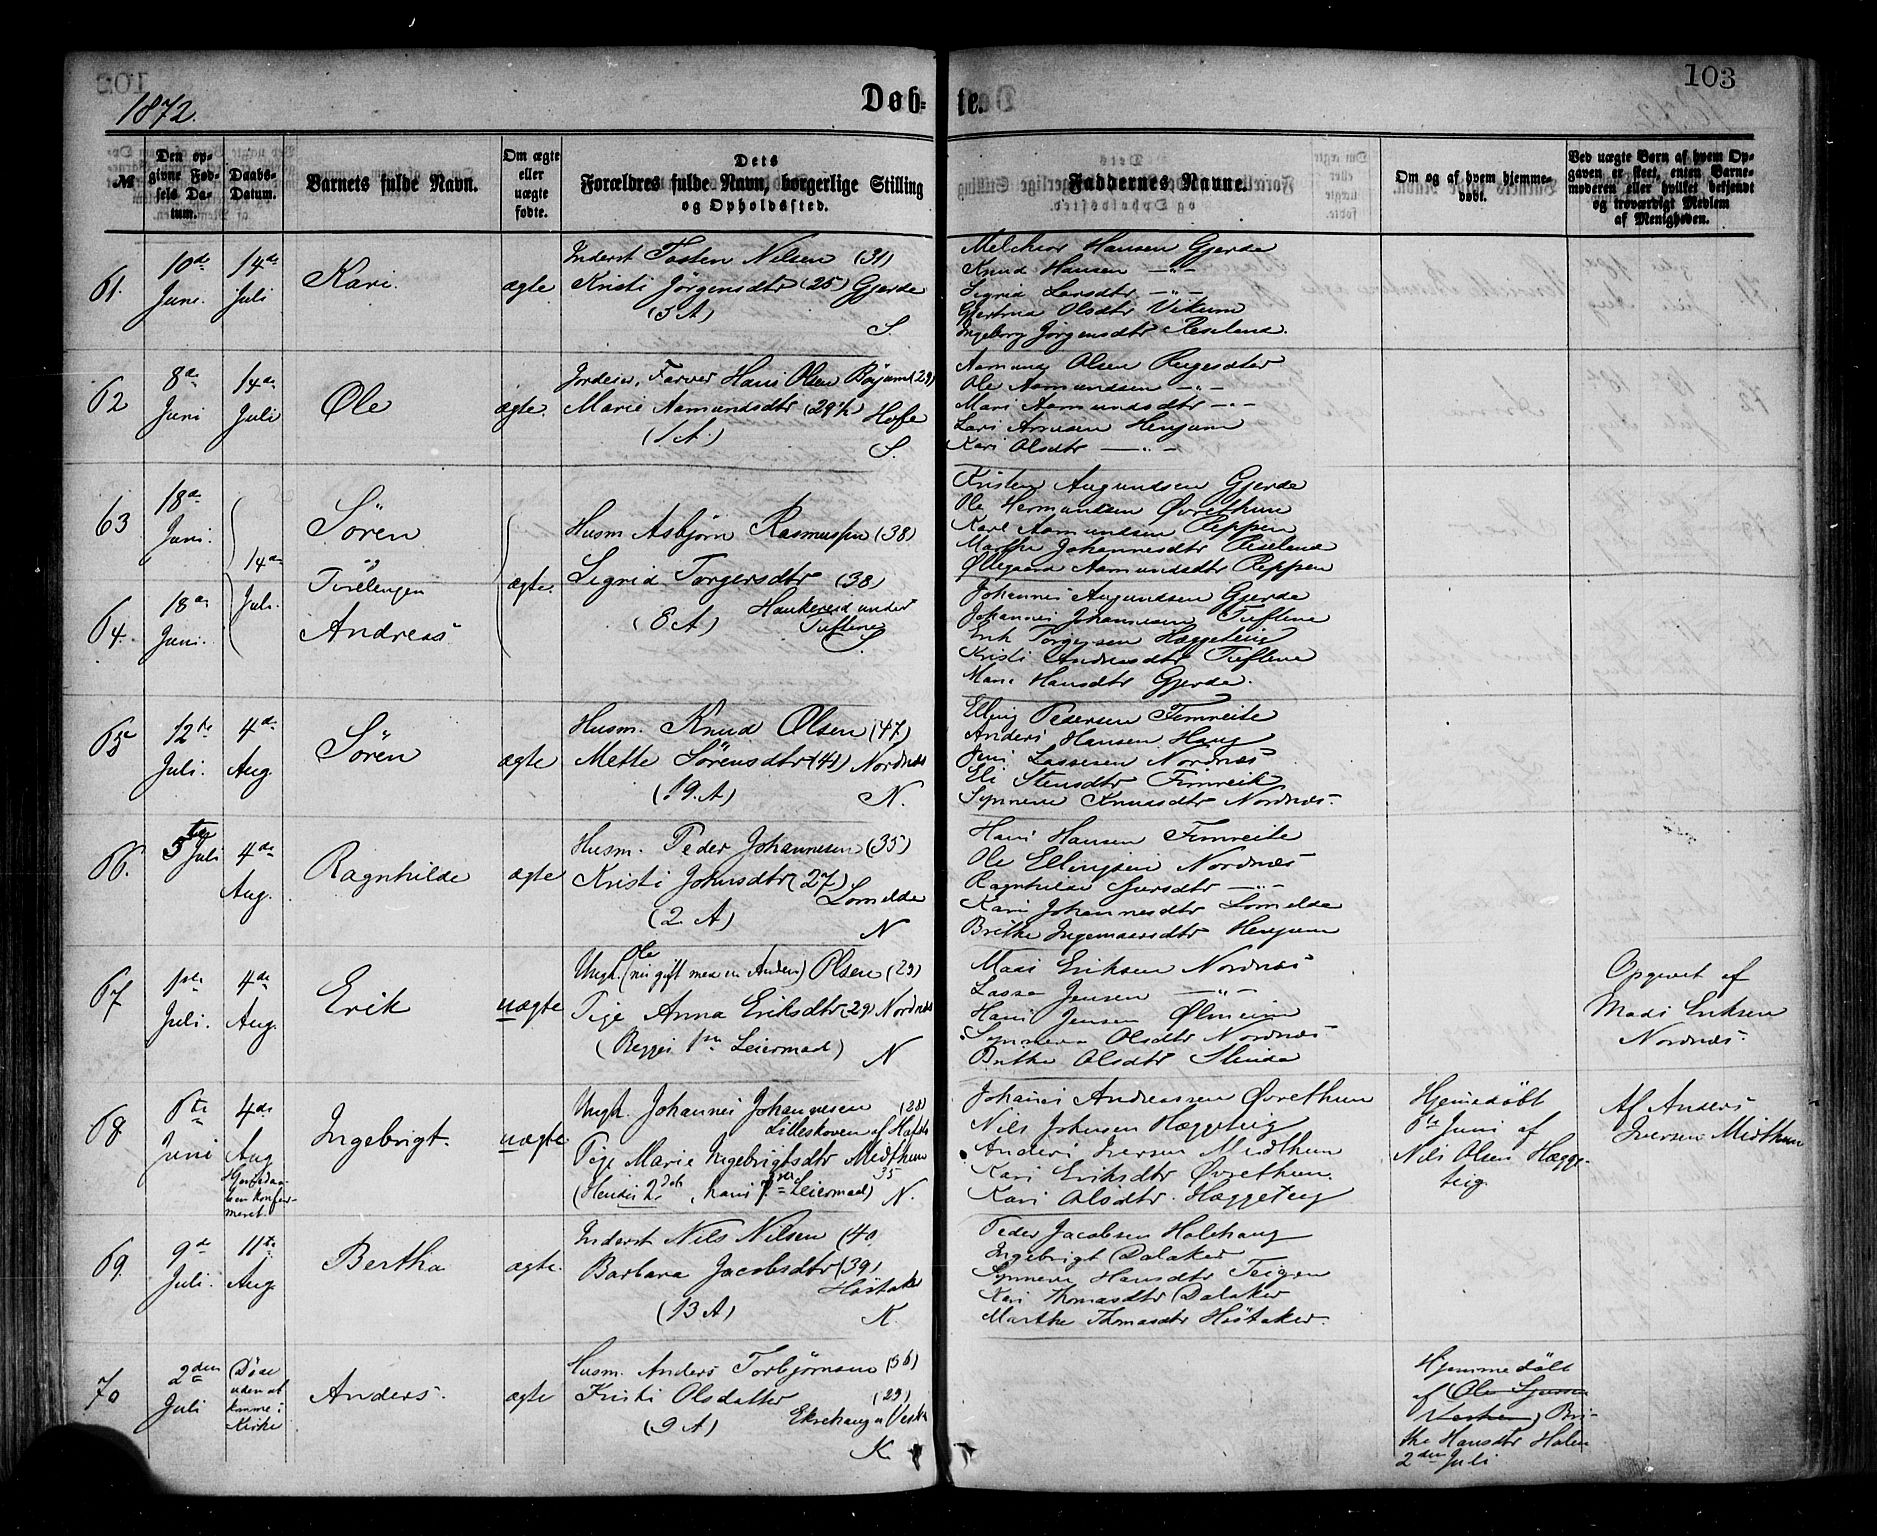 1872.
Døb-
te.
103
No
Den op-
givne Fød-
sels Da-
tum.
Daabs-
Datum.
Barnets fulde Navn.
Om ægte
eller
uægte
fødte.
Dets
Forældres fulde Navn, borgerlige Stilling
og Opholdssted.
Faddernes Navne.
Om og af hvem hjemme-
døbt.
Ved uægte Børn af hvem Op-
gaven er skeet, enten Barne-
moderen eller hvilket bekjendt
og troværdigt Medlem
af Menigheden.
61.
10de
Juni.
14de
Juli
Kari.
ægte
Inderst Tosten Nilsen (31)
Kristi Jørgensdtr (25) Gjerde
(3 A)
S.
Melchior Hansen Gjerde
Knud Hansen —"—
Sigrid Larsdtr —"—
Gjertrud Olsdtr Vikum
Ingeborg Jørgensdtr Reseland.
62
8de
Juni
14de
Juli
Ole
ægte.
Jordeier, Farver Hans Olsen Bøyum (29)
Marie Aamundsdtr (29½) Hofe
(1 A.)
S.
Aamund Olsen
Ole Aamundsen —"—
Mari Aamundsdtr —"—
Lars Henjum
Kari Olsdtr —"—
63
18de
Juni.
14de
Juli.
Sören
og
Tvillingen
64.
18de
Juni.
Andreas
ægte.
Husm Asbjørn Rasmussen (38)
Sigrid Torgersdtr (38)
(8 A) Haukereid under
Tuftene
S
Kristen Augundsen Gjerde
Ole Hermundsen Øvrethun
Karl Aamundsen Reppen
Marthe Johannesdtr Reseland
Øllegaard Aamundsdtr Reppen
Johannes Augundsen Gjerde
Johannes Johannesen Tuftene
Erik Torgersen Hæggeteig
Kristi Andersdtr Tuftene
Mari Hansdtr Gjerde.
65
12te
Juli.
4de
Aug.
Sören
ægte
Husm. Knud Olsen (47)
Mette Sörensdtr (41) Nordnæs
(19. A)
N.
Elling Pedersen Fimreite
Anders Hansen Haug
Jens Lassesen Nordnæs
Eli Stensdtr Fimreite
Synneve Knudsdtr Nordnæs.
66.
5te Juli
4de
Aug.
Ragnhilde
ægte
Husm. Peder Johannesen (35)
Kristi Johnsdtr (27)
Lomelde
(2 A)
N
Hans Hansen Fimreite
Ole Ellingsen Nordnæs
Ragnhilde Iversdtr —"—
Kari Johannesdtr Lomelde
Brithe Ingemarsdtr Henjum
67
1ste
Juli.
4de
Aug.
Erik
uægte
Ungk. Ole (nu gift med en Anden) Olsen (29)
Pige Anna Eriksdtr (29) Nordnæs
(Begges 1ste Leiermaal) N
Mads Eriksen Nordnæs
Lasse Jensen —"—
Hans Jensen Ølmeim
Synneva Olsdtr Nordnæs
Brithe Olsdtr Slinde
Opgivet af
Mads Eriksen
Nordnæs.
68.
6te
Juni
4de
Aug
Hjemmedaa-
ben konfir-
meret.
Ingebrigt.
uægte
Ungk. Johannes Johannesen (28)
Lilleskoven af Hafslo
Pige Marie Ingebrigtsdtr Midthun
35
(Hendes 2det, hans 1ste Leiermaal) N.
Johans Andreassen Øvrethun
Nils Johnsen Hæggeteig
Anders Iversen Midthun
Kari Eriksdtr Øvrethun.
Kari Olsdtr. Hæggeteig
Hjemmedøbt
6te Juni af
Nils Olsen Hægge-
teig.
Af Anders
Iversen Midthun
69.
9de
Juli.
11te
Aug.
Bertha
ægte.
Inderst Nils Nilsen (40)
Barbara Jacobsdtr (39)
Høstaker
(13 A)
K.
Peder Jacobsen Holehaug
Ingebrigt Dalaker
Synneva Hansdtr Teigen
Kari Thomasdtr Dalaker
Marthe Thomasdtr Høstaker.
70
2den
Juli
Døde
uden at
komme i
Kirke
Anders.
ægte
Husm. Anders Torbjørnsen (36)
Kristi Olsdatter (29)
(9 A)
K
Hjemmedøbt
af
Bri-
the Hansdtr Holen
2den Juli